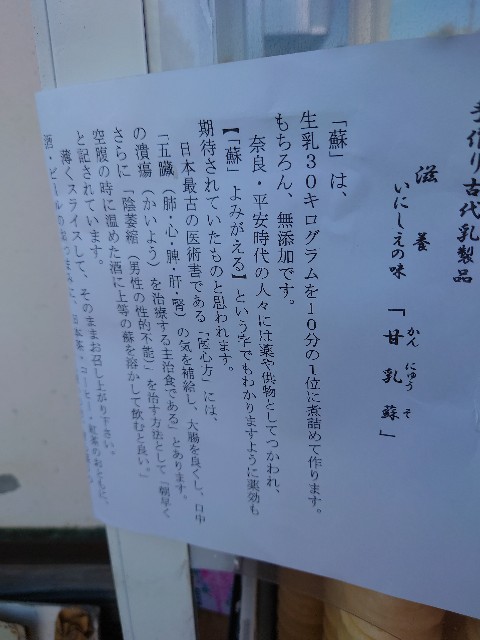 手作り古代乳製品
滋養
いにしえの味
「甘乳蘇」
かんにゅうそ
「蘇」は、
生乳30キログラムを10分の1位に煮詰めて作ります。
もちろん、無添加です。
奈良・平安時代の人々には薬や供物としてつかわれ、
【「蘇」よみがえる】という字でもわかりますように薬効も
期待されていたものと思われます。
日本最古の医術書である「医心方」には、
「五臓（肺・心・脾・肝・腎）の気を補給し、大腸を良くし、口中
の潰瘍（かいよう）を治療する主治食である」とあります。
さらに「陰萎縮（男性の性的不能）」を治す方法として「朝早く
空腹の時に温めた酒に上等の蘇を溶かして飲むと良い。」
と記されています。
薄くスライスして、そのままお召し上がり下さい。
酒・ビールのおつまみに、日本茶・コーヒー・紅茶のおともに、